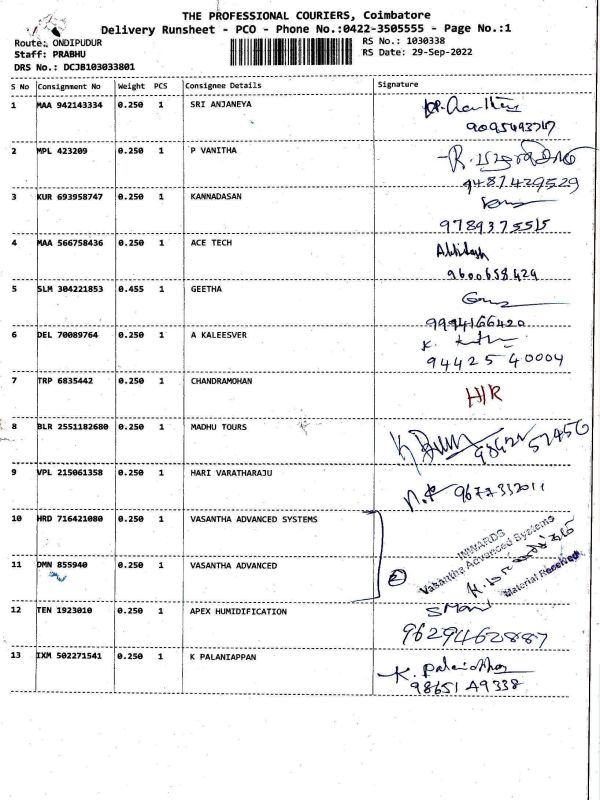 THE PROFESSIONAL COURIERS, Coimbatore
Delivery Runsheet - PCO - Phone No.:0422-3505555 - Page No.:1
Route: ONDIPUDUR
RS No.: 1030338
Staff: PRABHU
RS Date: 29-Sep-2022
DRS No.: DCJB103033801
S No Consignment No Weight PCS Consignee Details Signature
1 MAA 942143334 0.250 1 SRI ANJANEYA
2 MPL 423209 0.250 1 P VANITHA
9487429529
3 KUR 693958747 0.250 1 KANNADASAN
9789375515
4 MAA 566758436 0.250 1 ACE TECH
9600658424
5 SLM 304221853 0.455 1 GEETHA
9994166420
6 DEL 70089764 0.250 1 A KALEESVER
94425 40004
7 TRP 6835442 0.250 1 CHANDRAMOHAN H/R
8 BLR 2551182680 0.250 1 MADHU TOURS
9 VPL 215061358 0.250 1 HARI VARATHARAJU
10 HRD 716421080 0.250 1 VASANTHA ADVANCED SYSTEMS
INWARDS
Vasantha Advanced Systems
11 DMN 855940 0.250 1 VASANTHA ADVANCED 2
Material Received
12 TEN 1923010 0.250 1 APEX HUMIDIFICATION
9629462887
13 IXM 502271541 0.250 1 K PALANIAPPAN
98651 49338